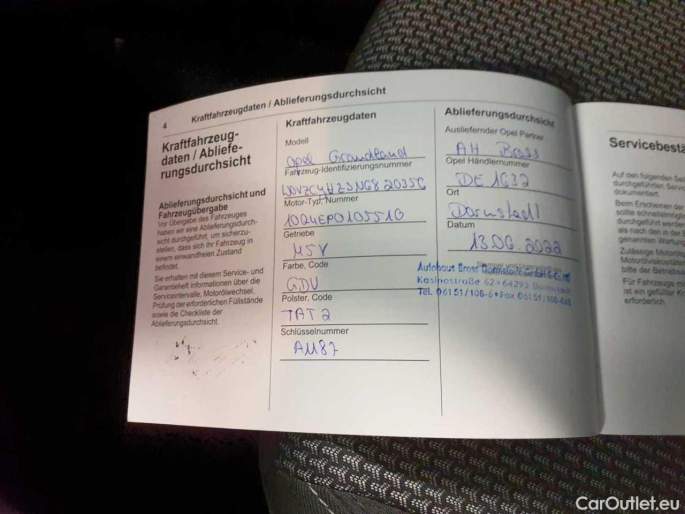 4 Kraftfahrzeugdaten / Ablieferungsdurchsicht
Kraftfahrzeug-
daten / Abliefe-
rungsdurchsicht
Ablieferungsdurchsicht und
Fahrzeugübergabe
Vor Übergabe des Fahrzeuges
haben wir eine Ablieferungsdurch-
sicht durchgeführt, um sicherzu-
stellen, dass sich Ihr Fahrzeug in
einem einwandfreien Zustand
befindet.
Sie erhalten mit diesem Service- und
Garantieheft Informationen über die
Serviceintervalle, Motorölwechsel,
Prüfung der erforderlichen Füllstände
sowie die Checkliste der
Ablieferungsdurchsicht.
Kraftfahrzeugdaten
Modell
Opel Grandland
Fahrzeug-Identifizierungsnummer
Motor-Typ, Nummer
Getriebe
M5V
Farbe, Code
GDU
Polster, Code
TAT2
Schlüsselnummer
A1187
Ablieferungsdurchsicht
Ausliefernder Opel Partner
AH Brass
Opel Händlernummer
DE 1G32
Ort
Darmstadt
Datum
13.06.2022
Autohaus Brass Darmstadt
Kasinostraße 62 • 64293 Darmstadt
Tel. 06151/106-6 • Fax 06151/106-
Servicebestä
Auf den folgenden Sei
durchgeführten Servic
dokumentiert.
Bei Erscheinen der
sollte schnellstmöglic
durchgeführt werden
als nach den in der B
genannten Wartung
Zulässige Motorölw
bitte der Betriebsa
Für Fahrzeuge m
ist ein gefülltes Kr
erforderlich.
CarOutlet.eu